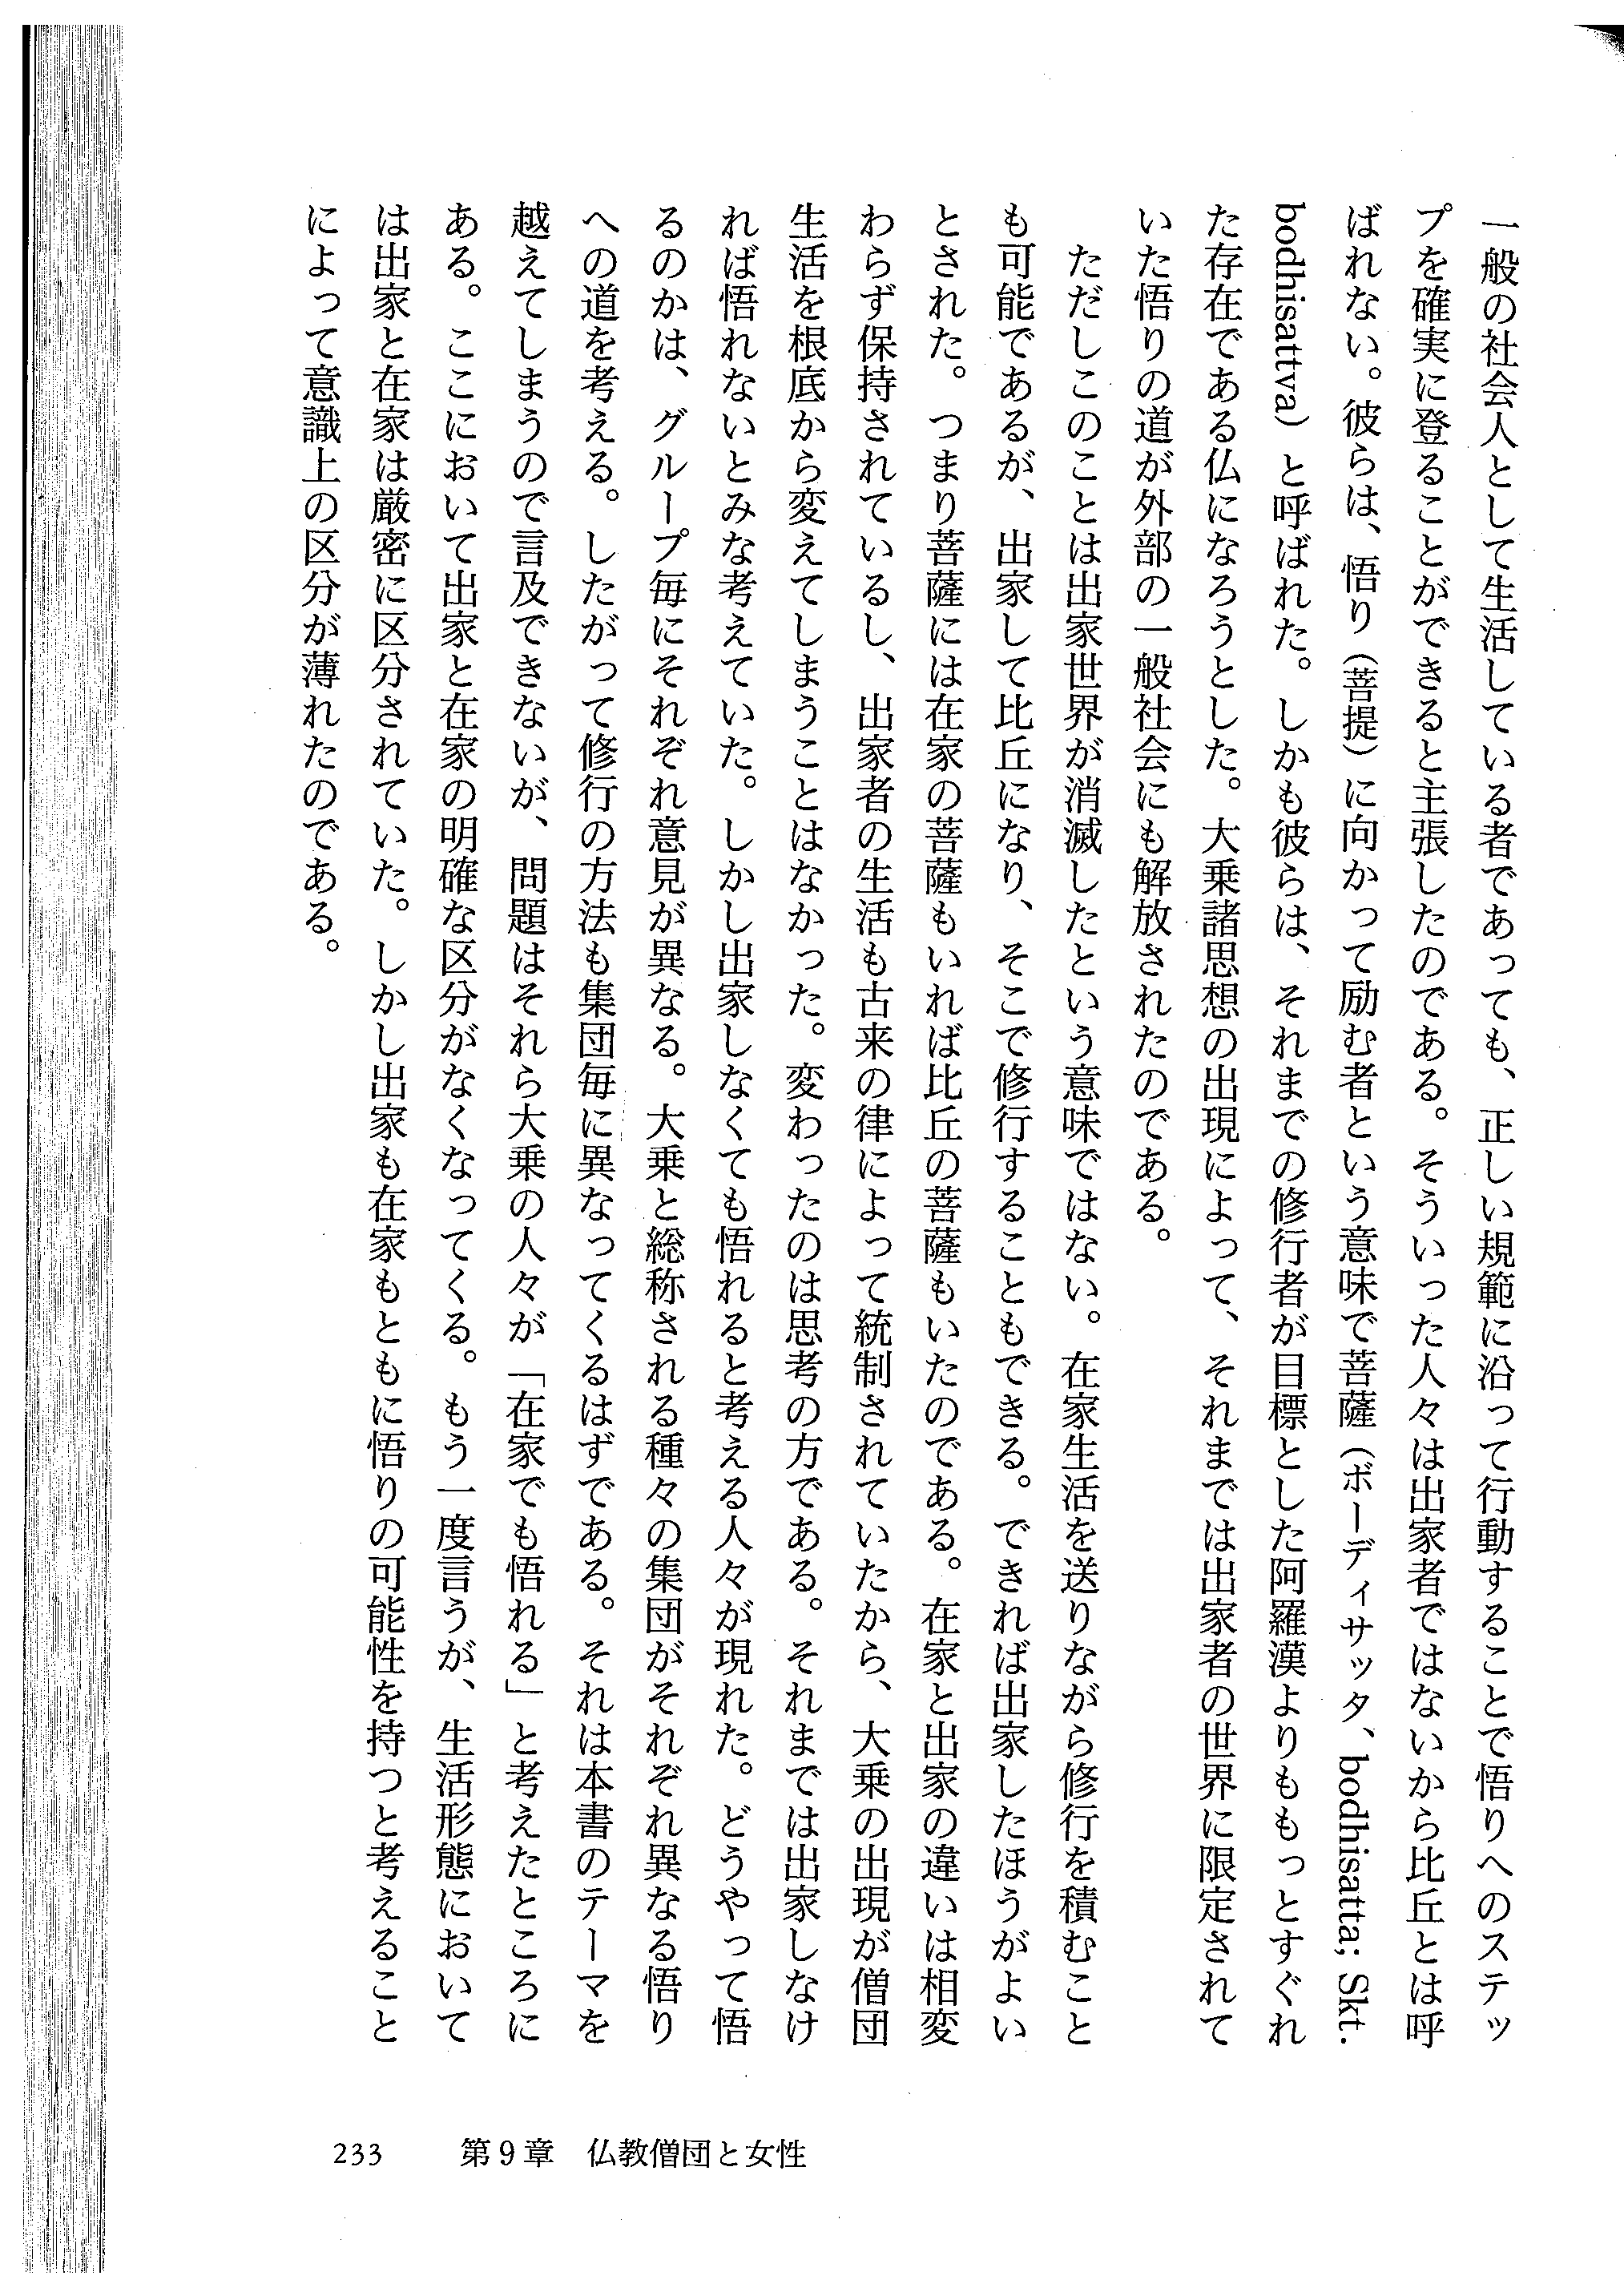 一般の社会人として生活している者であっても、正しい規範に沿って行動することで悟りへのステッ
プを確実に登ることができると主張したのである。そういった人々は出家者ではないから比丘とは呼
ばれない。彼らは、悟り（菩提）に向かって励む者という意味で菩薩（ボーディサッタ、bodhisatta; Skt.
bodhisattva）と呼ばれた。しかも彼らは、それまでの修行者が目標とした阿羅漢よりももっとすぐれ
た存在である仏になろうとした。大乗諸思想の出現によって、それまでは出家者の世界に限定されて
いた悟りの道が外部の一般社会にも解放されたのである。
ただしこのことは出家世界が消滅したという意味ではない。在家生活を送りながら修行を積むこと
も可能であるが、出家して比丘になり、そこで修行することもできる。できれば出家したほうがよい
とされた。つまり菩薩には在家の菩薩もいれば比丘の菩薩もいたのである。在家と出家の違いは相変
わらず保持されているし、出家者の生活も古来の律によって統制されていたから、大乗の出現が僧団
生活を根底から変えてしまうことはなかった。変わったのは思考の方である。それまでは出家しなけ
れば悟れないとみな考えていた。しかし出家しなくても悟れると考える人々が現れた。どうやって悟
るのかは、グループ毎にそれぞれ意見が異なる。大乗と総称される種々の集団がそれぞれ異なる悟り
への道を考える。したがって修行の方法も集団毎に異なってくるはずである。それは本書のテーマを
越えてしまうので言及できないが、問題はそれら大乗の人々が「在家でも悟れる」と考えたところに
ある。ここにおいて出家と在家の明確な区分がなくなってくる。もう一度言うが、生活形態において
は出家と在家は厳密に区分されていた。しかし出家も在家もともに悟りの可能性を持つと考えること
によって意識上の区分が薄れたのである。
233　第9章　仏教僧団と女性